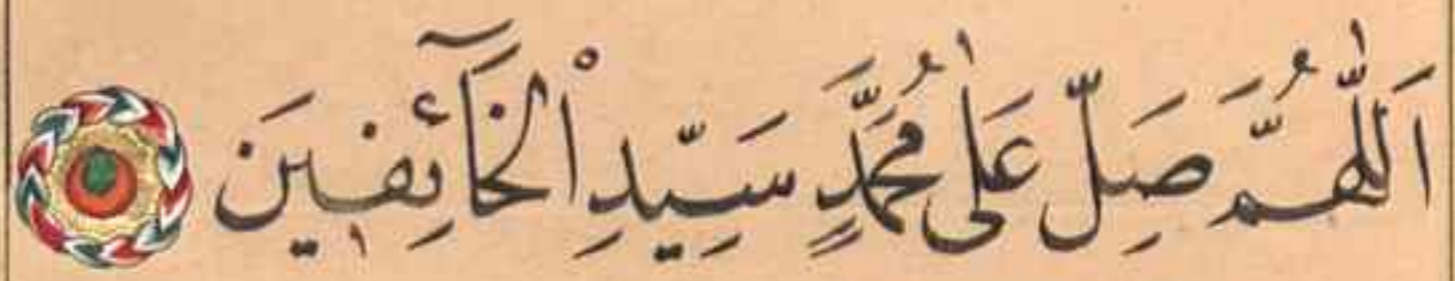 اَللّٰهُمَّ صَلِّ عَلٰى مُحَمَّدٍ سَيِّدِ الْخَآئِفِينَ